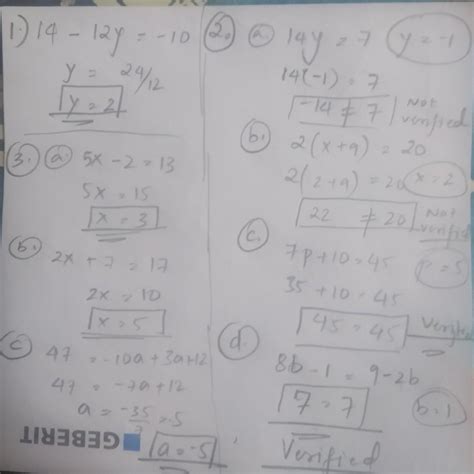 1.) 14 - 12y = -10
y = 24/12
y = 2
3. a 5x - 2 = 13
5x = 15
x = 3
b. 2x + 7 = 17
2x = 10
x = 5
c 47 = -10a + 3a + 12
47 = -7a + 12
a = -35/7 = -5
a = -5
GEBERIT
2. a 14y = 7 y = -1
14(-1) = 7
-14 ≠ 7 Not verified
b. 2(x+9) = 20
2(2+9) = 20 x = 2
22 ≠ 20 Not verified
c. 7p + 10 = 45
35 + 10 = 45 p = 5
45 = 45 Verified
d. 8b - 1 = 9 - 2b
7 = 7 b = 1
Verified